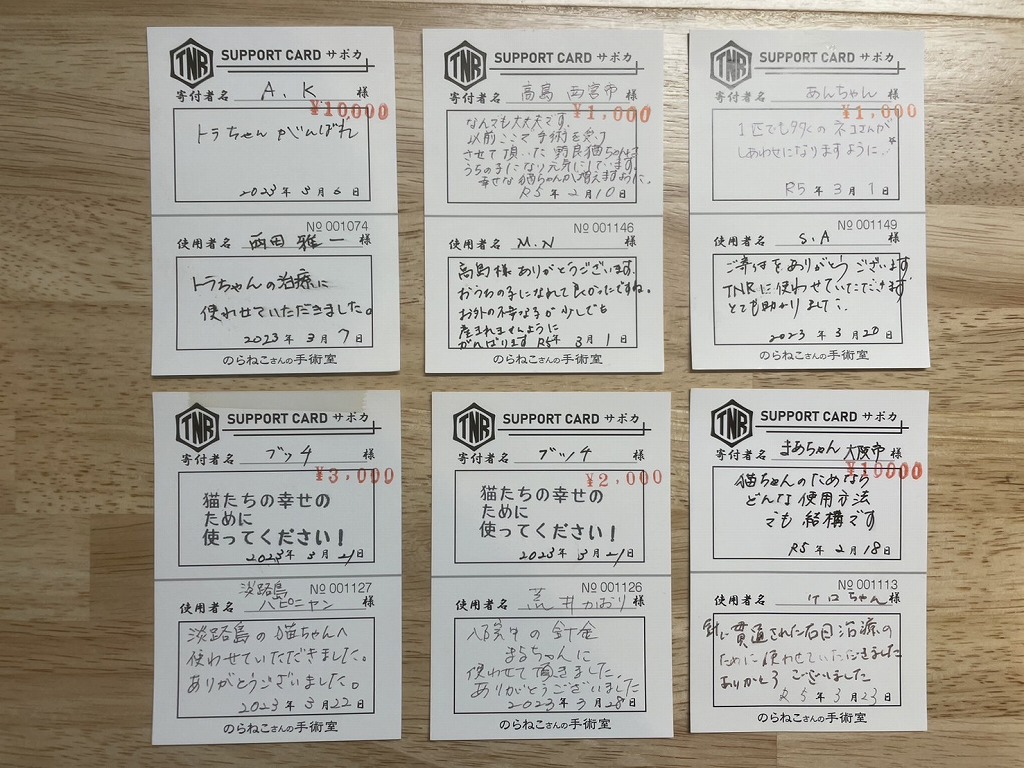 TNR SUPPORT CARD サポカ
寄付者名 A.K 様
¥10,000
トラちゃん がんばれ
2023年 3月 6日
No 001074
使用者名 雨田 雅一 様
トラちゃんの治療に
使わせていただきました。
2023年 3月 7日
のらねこさんの手術室
TNR SUPPORT CARD サポカ
寄付者名 高島 西宮市 様
¥1,000
なんでも大丈夫です。
以前ここで手術を受け
させて頂いた野良猫ちゃんは
うちの子になり元気にしています。
幸せな猫ちゃんが増えますように。
R5年 2月10日
No 001146
使用者名 M.N 様
高島様ありがとうございます。
おうちの子になれて良かったですね。
お外の不幸な子が少しでも
産まれませんように
がんばります R5年 3月 1日
のらねこさんの手術室
TNR SUPPORT CARD サポカ
寄付者名 あんちゃん 様
¥1,000
1匹でも多くの ネコさんが
しあわせになりますように
R5年 3月 1日
No 001149
使用者名 S.A 様
ご寄付をありがとうございます
TNRに使わせていただきます
とても助かります
2023年 3月 20日
のらねこさんの手術室
TNR SUPPORT CARD サポカ
寄付者名 ブッチ 様
¥3,000
猫たちの幸せの
ために
使ってください!
2023年 3月 21日
No 001127
使用者名 淡路島 ハピニャン 様
淡路島の猫ちゃんへ
使わせていただきました。
ありがとうございました。
2023年 3月22日
のらねこさんの手術室
TNR SUPPORT CARD サポカ
寄付者名 ブッチ 様
¥2,000
猫たちの幸せの
ために
使ってください!
2023年 3月 21日
No 001126
使用者名 荒井かおり 様
入院中の
まるちゃんに
使わせて頂きました。
ありがとうございました
2023年 3月 28日
のらねこさんの手術室
TNR SUPPORT CARD サポカ
寄付者名 まあちゃん 大阪市 様
¥10000
猫ちゃんのためなら
どんな使用方法
でも 結構です
R5年 2月18日
No 001113
使用者名 ケロちゃん 様
針に貫通された右目治療の
ために使わせていただきました
ありがとうございました
R5年 3月23日
のらねこさんの手術室